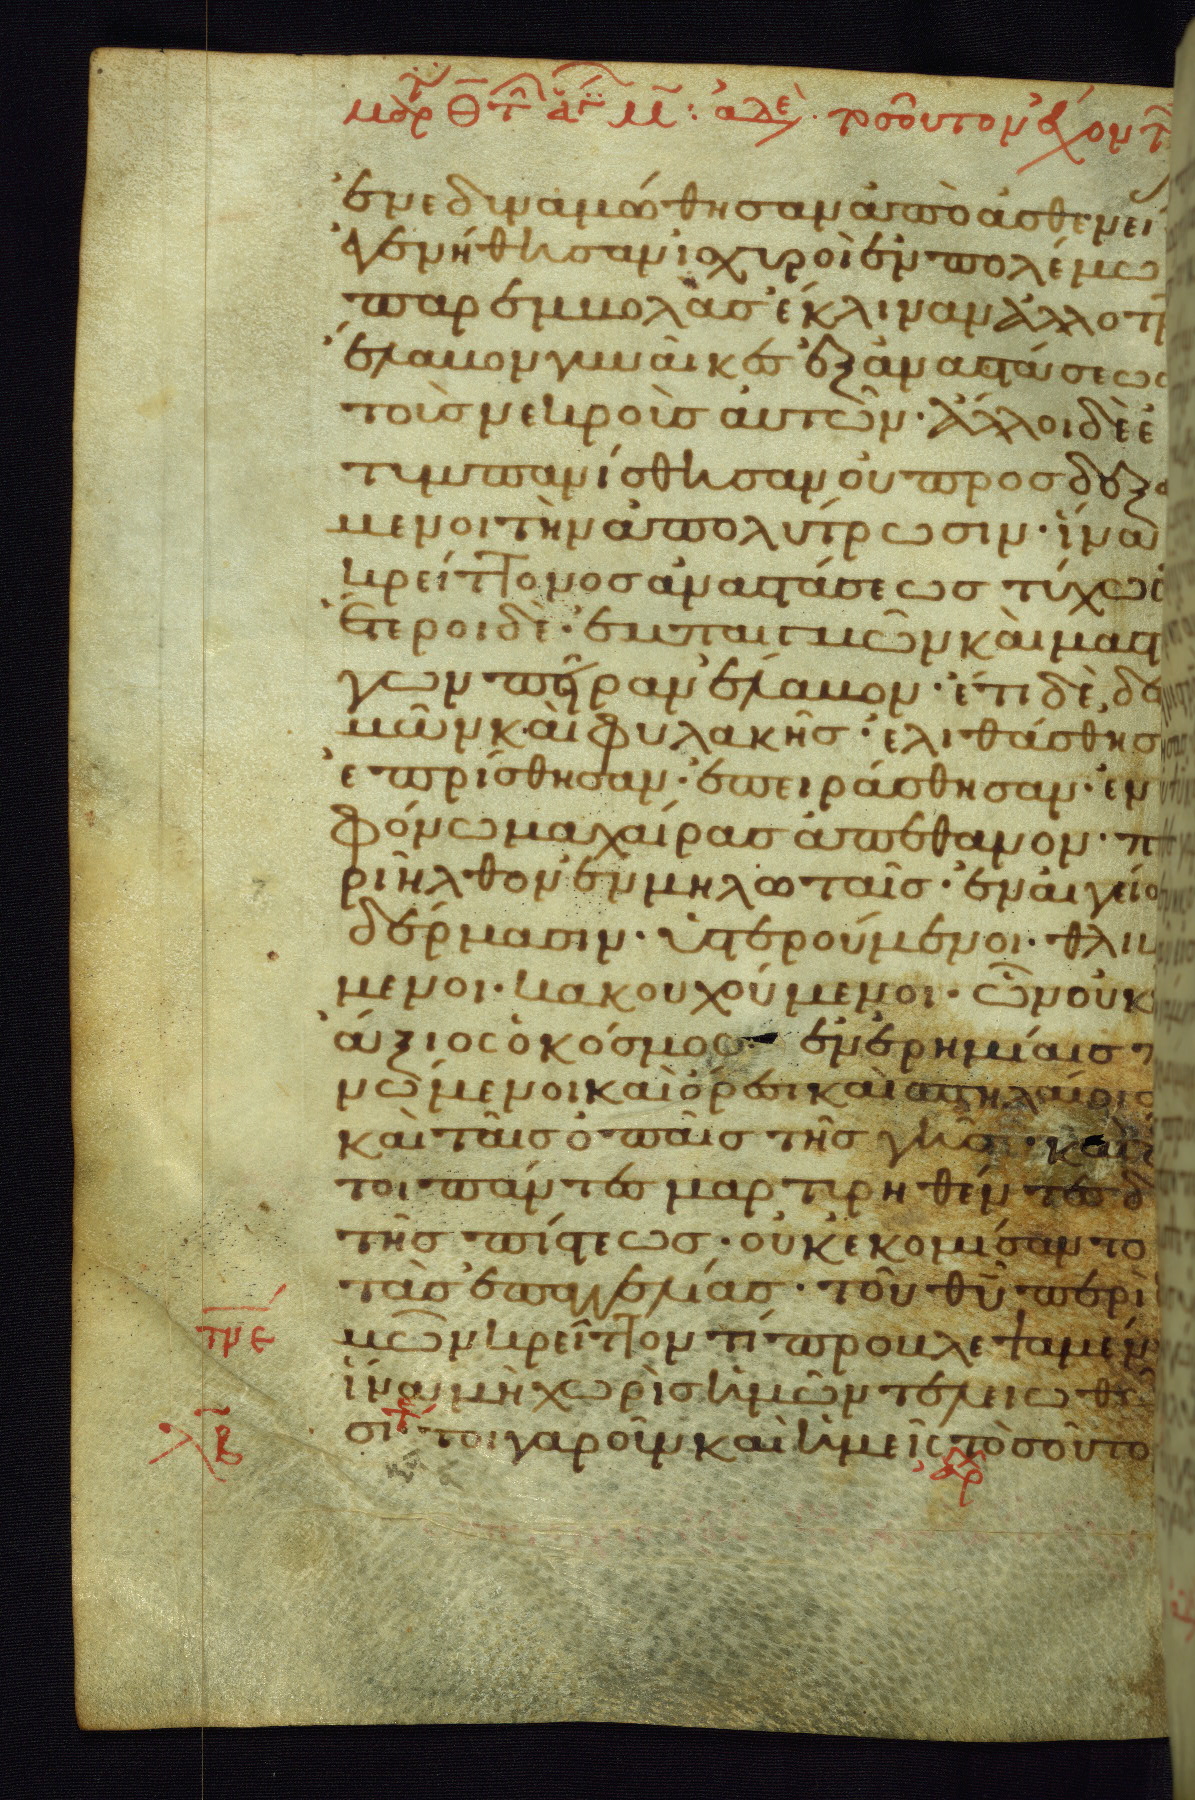 ἐνεδυναμώθησαν ἀπὸ ἀσθενεί
ἐγενήθησαν ἰσχυροὶ ἐν πολέμω
παρεμβολὰσ ἔκλιναν ἀλλοτρ
ἔλαβον γυναῖκες ἐξ ἀναστάσεως
τοὺσ νεκροὺσ ἀυτῶν · ἄλλοι δὲ ἐ
τυμπανίσθησαν ὀυ προσδεξα
μενοι τὴν ἀπολύτρωσιν · ἵνα
κρείττονοσ ἀναστάσεωσ τύχωσ
ἕτεροι δὲ · ἐμπαιγμῶν κὰι μαστ
γων πεῖραν ἔλαβον · ἔτι δὲ δε
μῶν κὰι φυλακῆσ · ἐλιθάσθησ
ἐπρίσθησαν · ἐπειράσθησαν · ἐν
φόνω μαχαίρασ ἀπέθανον · π
ριῆλθον ἐν μηλωταῖσ · ἐν ἀιγείο
δέρμασιν · ὑστερούμενοι · θλιβ
μενοι · κακουχούμενοι · ὧν οὐκ
ἄξιος ὁ κόσμοσ · ἐν ἐρημίαισ
νώμενοι καὶ ὄρεσι καὶ σπηλαίοισ
καὶ ταῖσ ὀπαῖσ τῆσ γῆσ · καὶ
τοι πάντεσ μαρτυρηθέντεσ δ
τῆσ πίστεωσ · οὐκ ἐκομίσαντο
τὰσ ἐπαγγελίασ · τοῦ θῦ περὶ
τνε μῶν κρεῖττον τί προβλεψαμέν
ἵνα μὴ χωρὶσ ἡμῶν τελειωθῶ
λβ σι · τοιγαροῦν καὶ ἡμεῖς τὸσοῦτο